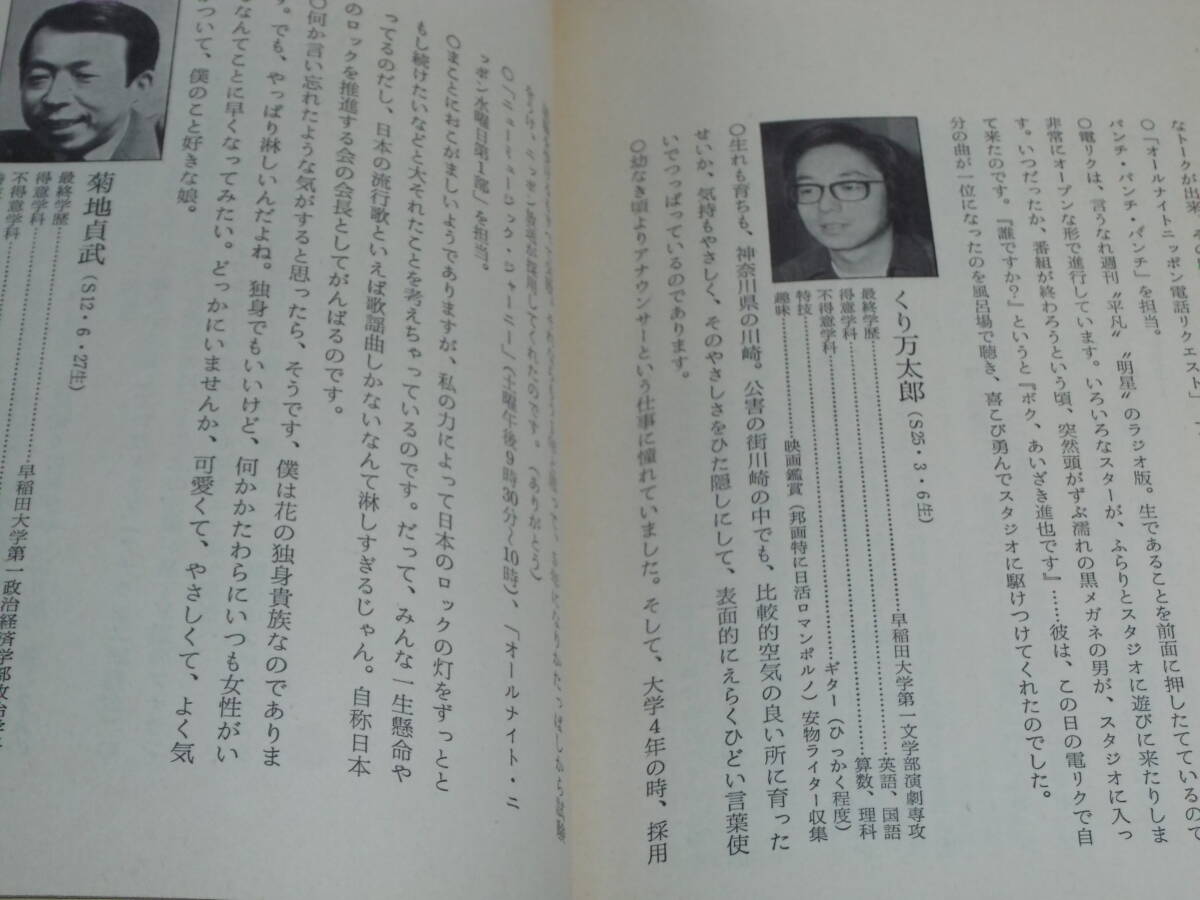 なトークが出来、その
○「オールナイトニッポン電話リクエスト」、
パンチ・パンチ・パンチ」を担当。
○電リクは、言うなれ週刊〝平凡〟〝明星〟のラジオ版。生であることを前面に押したてているので
非常にオープンな形で進行しています。いろいろなスターが、ふらりとスタジオに遊びに来たりしま
す。いつだったか、番組が終わろうという頃、突然頭がずぶ濡れの黒メガネの男が、スタジオに入っ
て来たのです。『誰ですか？』というと『ボク、あいざき進也です』……彼は、この日の電リクで自
分の曲が一位になったのを風呂場で聴き、喜こび勇んでスタジオに駆けつけてくれたのでした。
くり万太郎（S25・3・6生）
最終学歴……早稲田大学第一文学部演劇専攻
得意学科……英語、国語
不得意学科……算数、理科
特技……ギター（ひっかく程度）
趣味……映画鑑賞（邦画特に日活ロマンポルノ）安物ライター収集
○生れも育ちも、神奈川県の川崎。公害の街川崎の中でも、比較的空気の良い所に育った
せいか、気持もやさしく、そのやさしさをひた隠しにして、表面的にえらくひどい言葉使
いでつっぱっているのであります。
○幼なき頃よりアナウンサーという仕事に憧れていました。そして、大学4年の時、採用
ニッポン放送が採用してくれたのです。（ありがとう）
○「ニューミュージック・ジャーニー」（土曜午後9時30分〜10時）、「オールナイト・ニ
ッポン水曜日第1部」を担当。
○まことにおこがましいようでありますが、私の力によって日本のロックの灯をずっとと
もし続けたいなどと大それたことを考えちゃっているのです。だって、みんな一生懸命や
ってるのだし、日本の流行歌といえば歌謡曲しかないなんて淋しすぎるじゃん。自称日本
のロックを推進する会の会長としてがんばるのです。
○何か言い忘れたような気がすると思ったら、そうです、僕は花の独身貴族なのでありま
す。でも、やっぱり淋しいんだよね。独身でもいいけど、何かかたわらにいつも女性がい
るなんてことに早くなってみたい。どっかにいませんか、可愛くて、やさしくて、よく気
がついて、僕のこと好きな娘。
菊地貞武（S12・6・27生）
最終学歴……早稲田大学第一政治経済学部政治学
得意学科……
不得意学科……